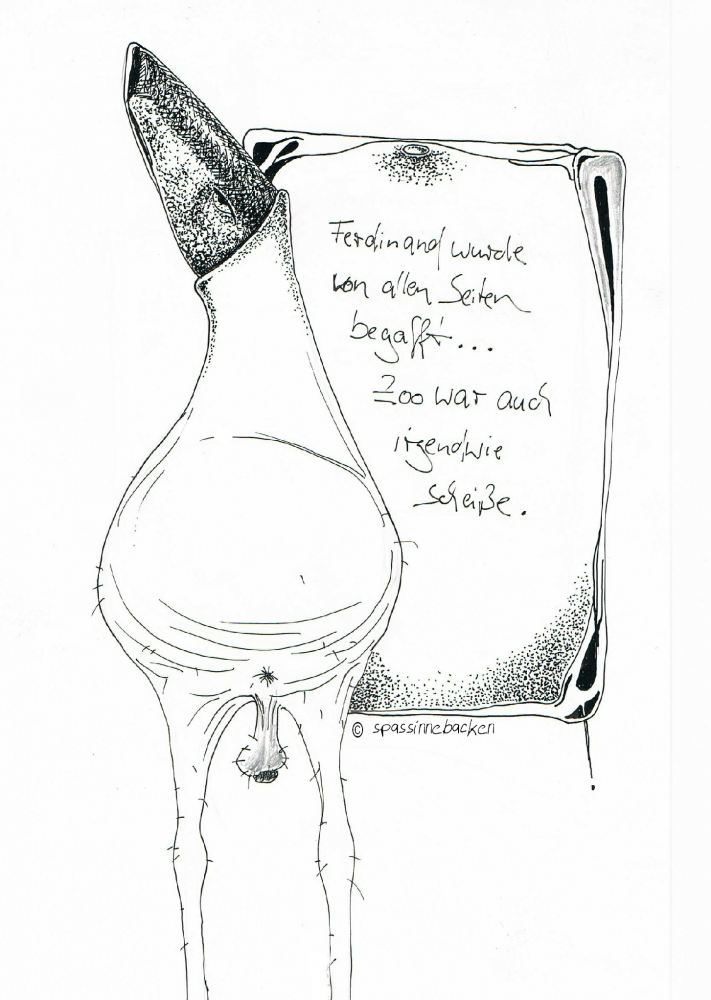 Ferdinand wurde
von allen Seiten
begafft...
Zoo war auch
irgendwie
scheiße.
© spassinnebacken